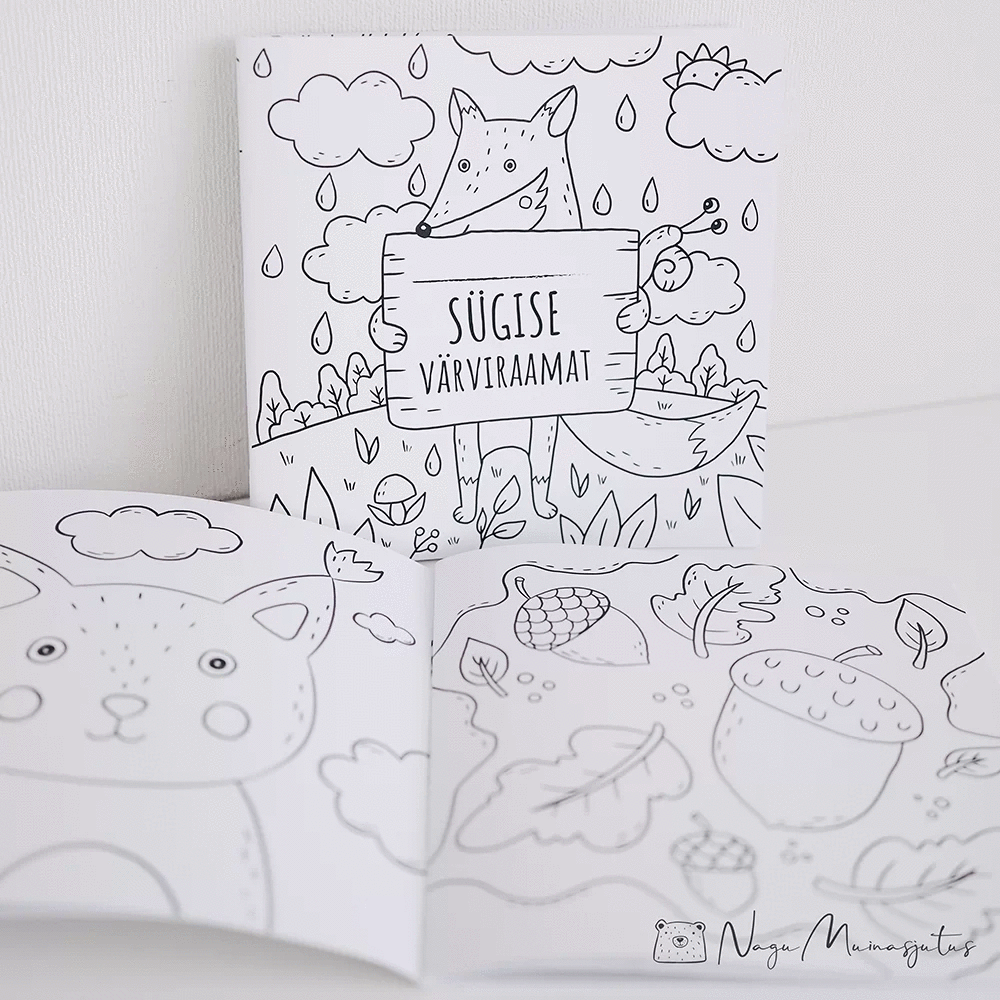 SÜGISE
VÄRVIRAAMAT
Nagu Muinasjutus